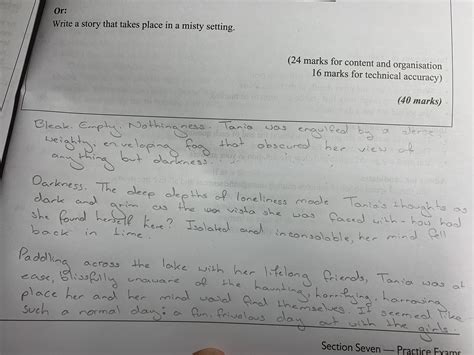 Or:
Write a story that takes place in a misty setting.
(24 marks for content and organisation
16 marks for technical accuracy)
(40 marks)
Bleak. Empty. Nothingness. Tania was engulfed by a dense,
weighty, enveloping fog that obscured her view of
anything but darkness.
Darkness. The deep depths of loneliness made Tania's thoughts as
dark and grim as the vista she was faced with - how had
she found herself here? Isolated and inconsolable, her mind fell
back in time.
Paddling across the lake with her lifelong friends, Tania was at
ease, blissfully unaware of the haunting, horrifying, harrowing
place her and her mind would find themselves. It seemed like
such a normal day; a fun, frivolous day out with the girls
Section Seven — Practice Exams